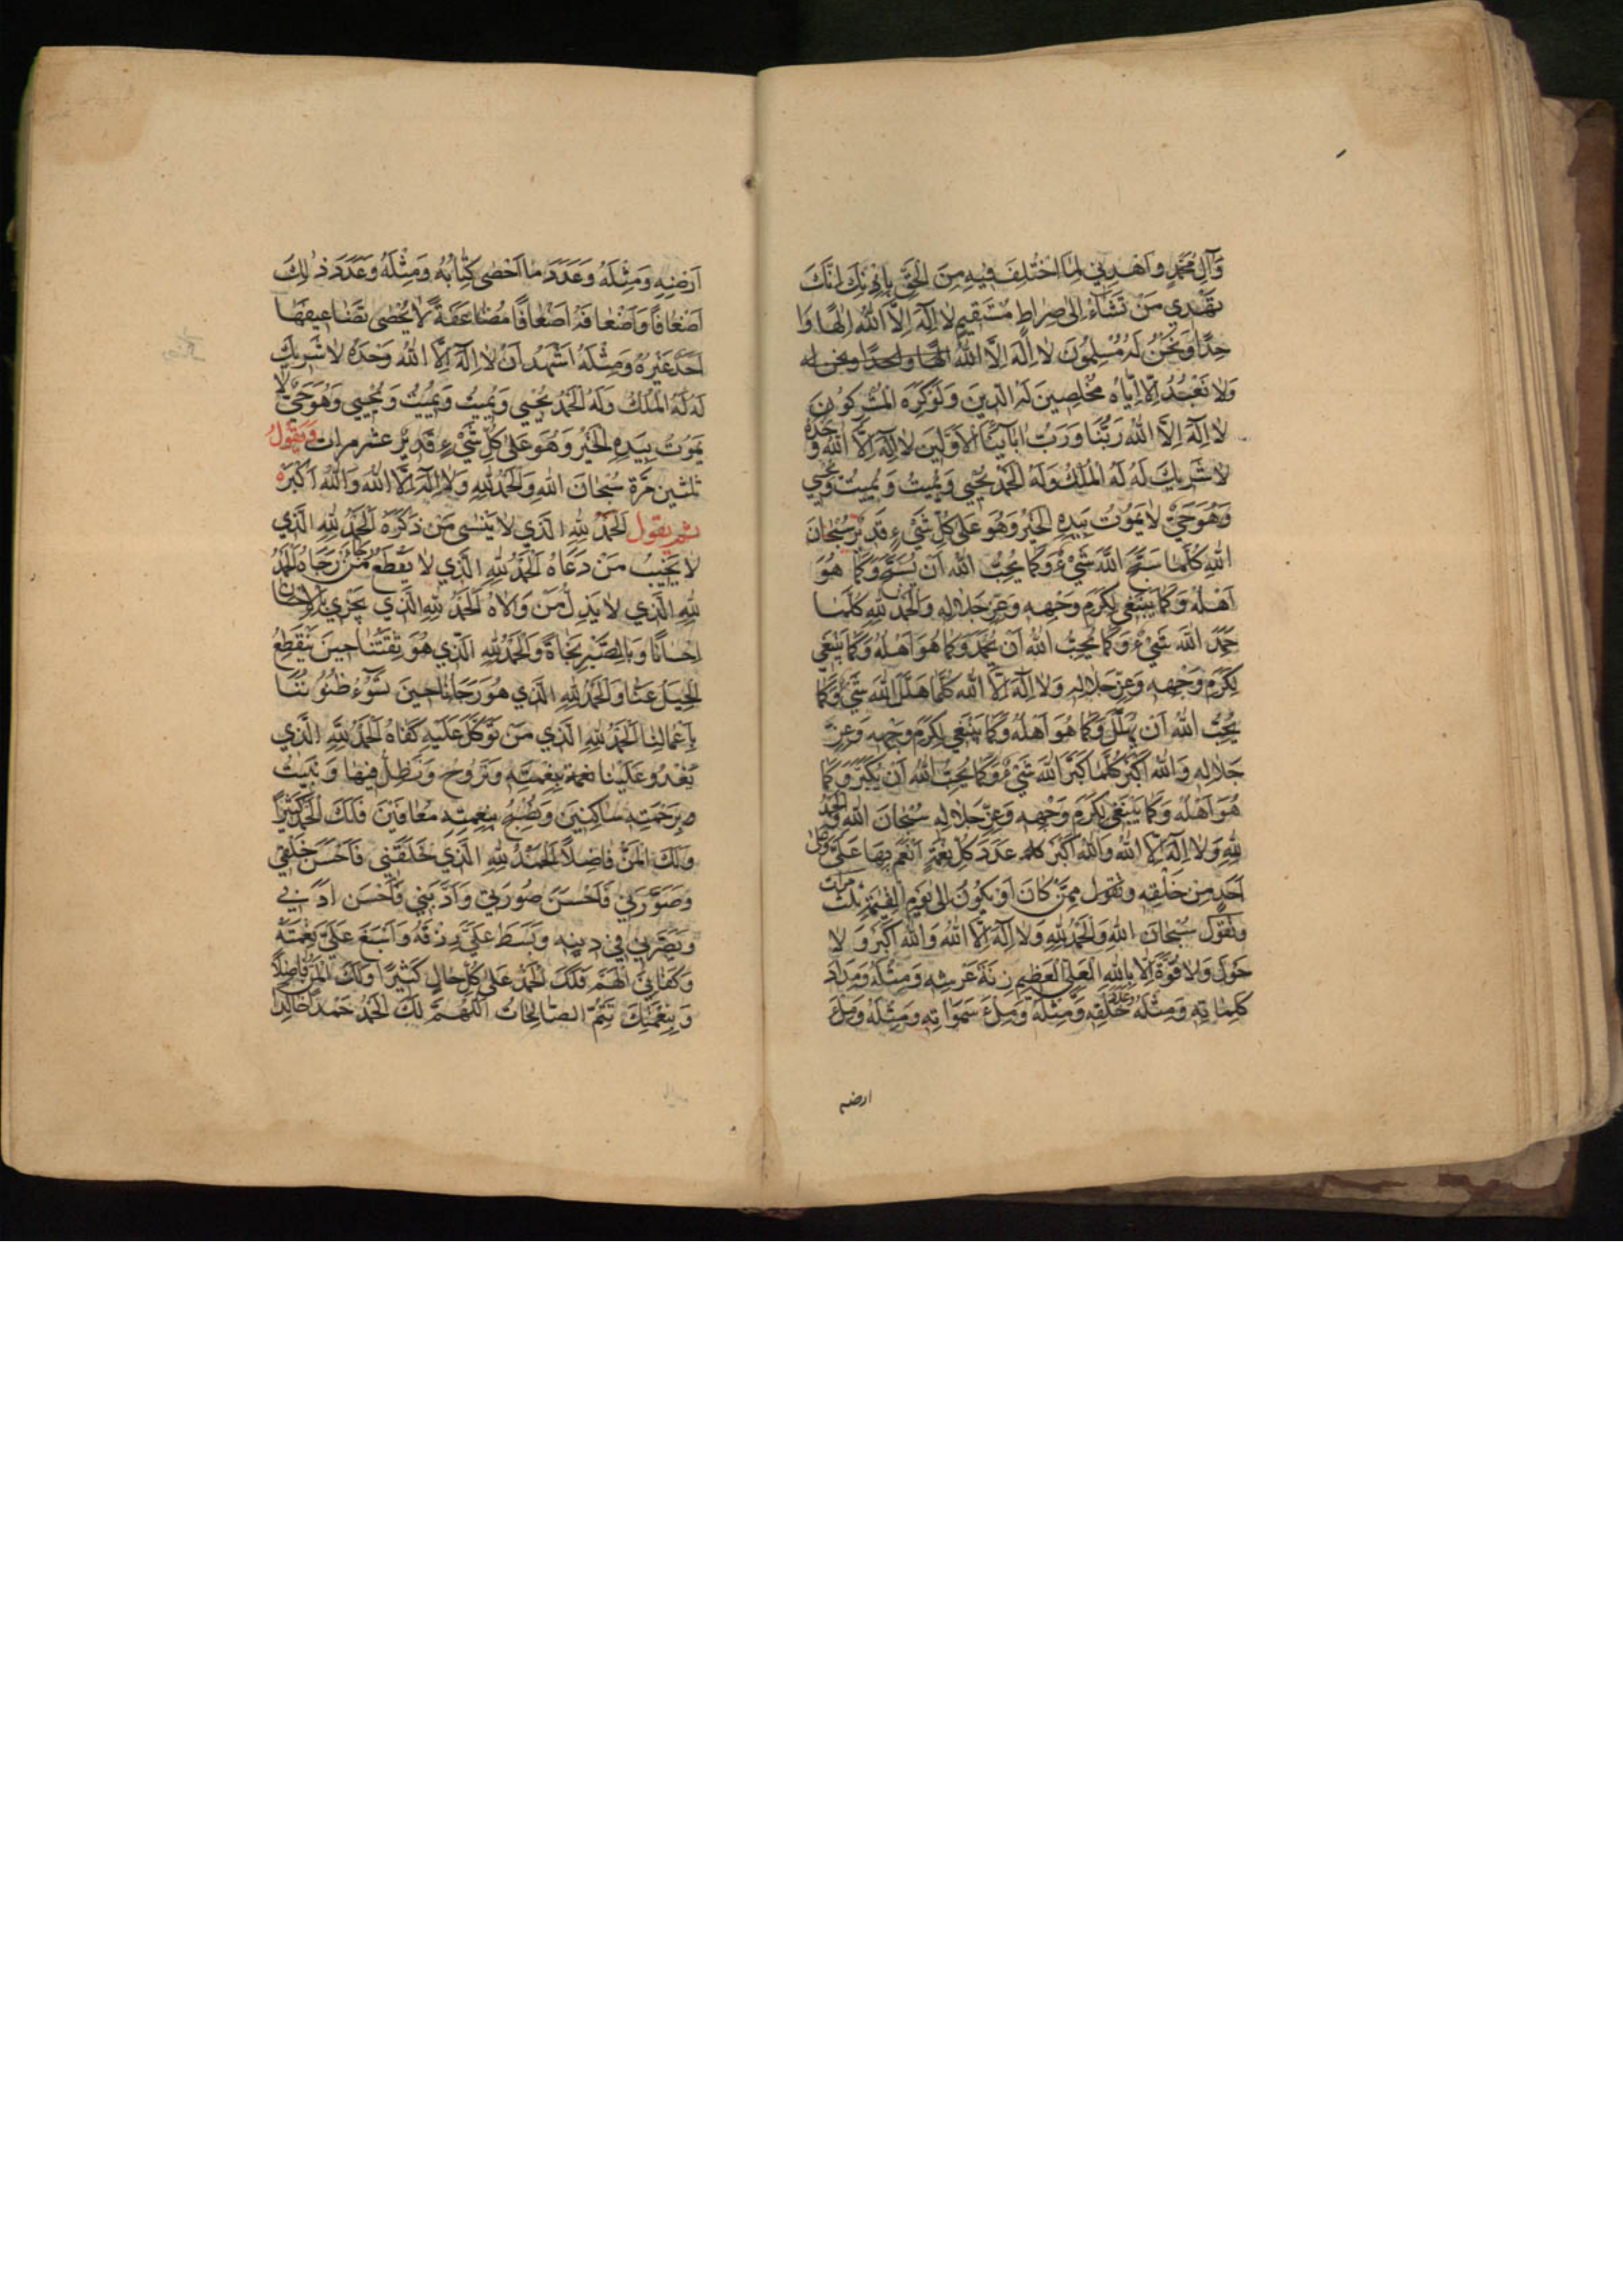 وَآلِ مُحَمَّدٍ وَاهْدِنِي لِمَا اخْتُلِفَ فِيهِ مِنَ الْحَقِّ بِإِذْنِكَ إِنَّكَ
تَهْدِي مَنْ تَشَاءُ إِلَى صِرَاطٍ مُسْتَقِيمٍ لَا إِلَهَ إِلَّا اللهُ إِلَهًا وَا
حِدًا وَنَحْنُ لَهُ مُسْلِمُونَ لَا إِلَهَ إِلَّا اللهُ إلها واحدا ونحن له
وَلَا نَعْبُدُ إِلَّا إِيَّاهُ مُخْلِصِينَ لَهُ الدِّينَ وَلَوْ كَرِهَ الْمُشْرِكُونَ
لَا إِلَهَ إِلَّا اللهُ رَبُّنَا وَرَبُّ آبَائِنَا الْأَوَّلِينَ لَا إِلَهَ إِلَّا اللهُ وَحْدَهُ
لَا شَرِيكَ لَهُ لَهُ الْمُلْكُ وَلَهُ الْحَمْدُ يُحْيِي وَيُمِيتُ وَيُمِيتُ وَيُحْيِي
وَهُوَ حَيٌّ لَا يَمُوتُ بِيَدِهِ الْخَيْرُ وَهُوَ عَلَى كُلِّ شَيْءٍ قَدِيرٌ سُبْحَانَ
اللهِ كُلَّمَا سَبَّحَ اللهَ شَيْءٌ وَكَمَا يُحِبُّ اللهُ أَنْ يُسَبَّحَ وَكَمَا هُوَ
أَهْلُهُ وَكَمَا يَنْبَغِي لِكَرَمِ وَجْهِهِ وَعِزِّ جَلَالِهِ وَالْحَمْدُ لِلهِ كُلَّمَا
حَمِدَ اللهَ شَيْءٌ وَكَمَا يُحِبُّ اللهُ أَنْ يُحْمَدَ وَكَمَا هُوَ أَهْلُهُ وَكَمَا يَنْبَغِي
لِكَرَمِ وَجْهِهِ وَعِزِّ جَلَالِهِ وَلَا إِلَهَ إِلَّا اللهُ كُلَّمَا هَلَّلَ اللهَ شَيْءٌ وَكَمَا
يُحِبُّ اللهُ أَنْ يُهَلَّلَ وَكَمَا هُوَ أَهْلُهُ وَكَمَا يَنْبَغِي لِكَرَمِ وَجْهِهِ وَعِزِّ
جَلَالِهِ وَاللهُ أَكْبَرُ كُلَّمَا كَبَّرَ اللهَ شَيْءٌ وَكَمَا يُحِبُّ اللهُ أَنْ يُكَبَّرَ وَكَمَا
هُوَ أَهْلُهُ وَكَمَا يَنْبَغِي لِكَرَمِ وَجْهِهِ وَعِزِّ جَلَالِهِ سُبْحَانَ اللهِ وَالْحَمْدُ
لِلهِ وَلَا إِلَهَ إِلَّا اللهُ وَاللهُ أَكْبَرُ عَدَدَ كُلِّ نِعْمَةٍ أَنْعَمَ بِهَا عَلَيَّ وَعَلَى
أَحَدٍ مِنْ خَلْقِهِ وتقول مِمَّنْ كَانَ أَوْ يَكُونُ إِلَى يَوْمِ الْقِيمَةِ ثلث مرات
وَتَقُولُ سُبْحَانَ اللهِ وَالْحَمْدُ لِلهِ وَلَا إِلَهَ إِلَّا اللهُ وَاللهُ أَكْبَرُ وَلَا
حَوْلَ وَلَا قُوَّةَ إِلَّا بِاللهِ الْعَلِيِّ الْعَظِيمِ زِنَةَ عَرْشِهِ وَمِثْلَهُ وَمِدَادَ
كَلِمَاتِهِ وَمِثْلَهُ وَعَدَدَ خَلْقِهِ وَمِثْلَهُ وَمِلْءَ سَمَوَاتِهِ وَمِثْلَهُ وَمِلْءَ
ارضه
أَرْضِهِ وَمِثْلَهُ وَعَدَدَ مَا أَحْصَى كِتَابُهُ وَمِثْلَهُ وَعَدَدَ ذَلِكَ
أَضْعَافًا وَأَضْعَافَهُ أَضْعَافًا مُضَاعَفَةً لَا يُحْصِي تَضَاعِيفَهَا
أَحَدٌ غَيْرُهُ وَمِثْلَهُ أَشْهَدُ أَنْ لَا إِلَهَ إِلَّا اللهُ وَحْدَهُ لَا شَرِيكَ
لَهُ لَهُ الْمُلْكُ وَلَهُ الْحَمْدُ يُحْيِي وَيُمِيتُ وَيُمِيتُ وَيُحْيِي وَهُوَ حَيٌّ لَا
يَمُوتُ بِيَدِهِ الْخَيْرُ وَهُوَ عَلَى كُلِّ شَيْءٍ قَدِيرٌ عشر مرات وَيَقُولُ
ثلثين مَرَّة سُبْحَانَ اللهِ وَالْحَمْدُ لِلهِ وَلَا إِلَهَ إِلَّا اللهُ وَاللهُ أَكْبَرُ
ثم يقول الْحَمْدُ لِلهِ الَّذِي لَا يَنْسَى مَنْ ذَكَرَهُ الْحَمْدُ لِلهِ الَّذِي
لَا يُخَيِّبُ مَنْ دَعَاهُ الْحَمْدُ لِلهِ الَّذِي لَا يَقْطَعُ رَجَاءَ مَنْ رَجَاهُ الْحَمْدُ
لِلهِ الَّذِي لَا يُذِلُّ مَنْ وَالَاهُ الْحَمْدُ لِلهِ الَّذِي يَجْزِي بِالْإِحْسَانِ
إِحْسَانًا وَبِالصَّبْرِ نَجَاةً وَالْحَمْدُ لِلهِ الَّذِي هُوَ ثِقَتُنَا حِينَ يَنْقَطِعُ
الْحِيَلُ عَنَّا وَالْحَمْدُ لِلهِ الَّذِي هُوَ رَجَاؤُنَا حِينَ تَسُوءُ ظُنُونُنَا
بِأَعْمَالِنَا الْحَمْدُ لِلهِ الَّذِي مَنْ تَوَكَّلَ عَلَيْهِ كَفَاهُ الْحَمْدُ لِلهِ الَّذِي
يَغْدُو عَلَيْنَا نعمة بِنِعْمَتِهِ وَنَرُوحُ وَنَظَلُّ فِيهَا وَنَبِيتُ
بِرَحْمَتِهِ سَاكِنِينَ وَنُصْبِحُ بِنِعْمَتِهِ مُعَافَيْنَ فَلَكَ الْحَمْدُ كَثِيرًا
وَلَكَ الْمَنُّ فَاضِلًا الْحَمْدُ لِلهِ الَّذِي خَلَقَنِي فَأَحْسَنَ خَلْقِي
وَصَوَّرَنِي فَأَحْسَنَ صُورَتِي وَأَدَّبَنِي فَأَحْسَنَ أَدَبِي
وَبَصَّرَنِي فِي دِينِهِ وَبَسَطَ عَلَيَّ رِزْقَهُ وَأَسْبَغَ عَلَيَّ نِعْمَتَهُ
وَكَفَانِي الْهَمَّ فَلَكَ الْحَمْدُ عَلَى كُلِّ حَالٍ كَثِيرًا وَلَكَ الْمَنُّ فَاضِلًا
وَبِنِعْمَتِكَ تَتِمُّ الصَّالِحَاتُ اللَّهُمَّ لَكَ الْحَمْدُ حَمْدًا خَالِدًا